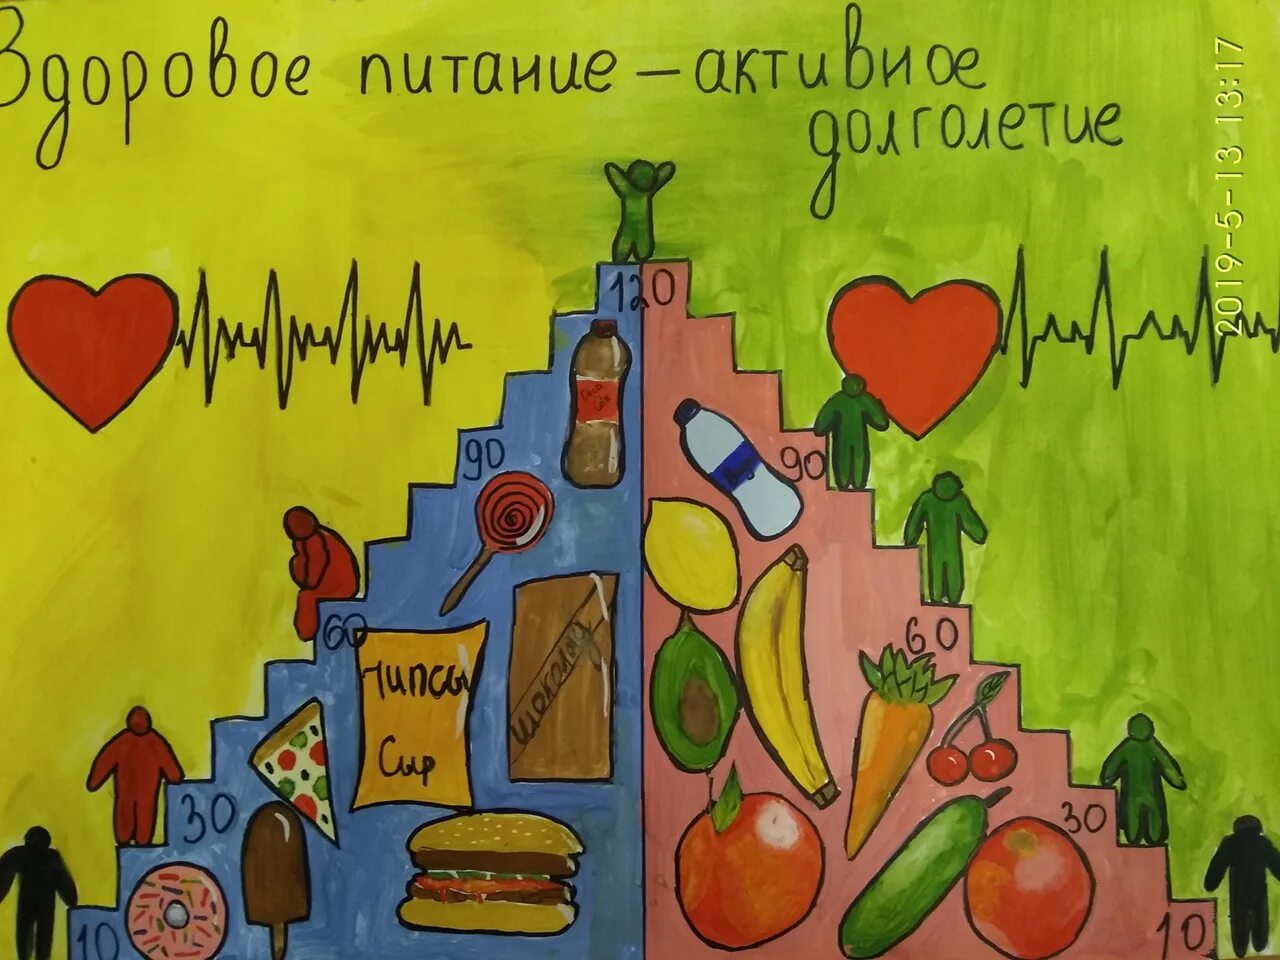 Здоровое питание – активное
долголетие
2019-5-13 13:17
120
90
90
60
60
Чипсы
Сыр
шоколад
30
30
10
10